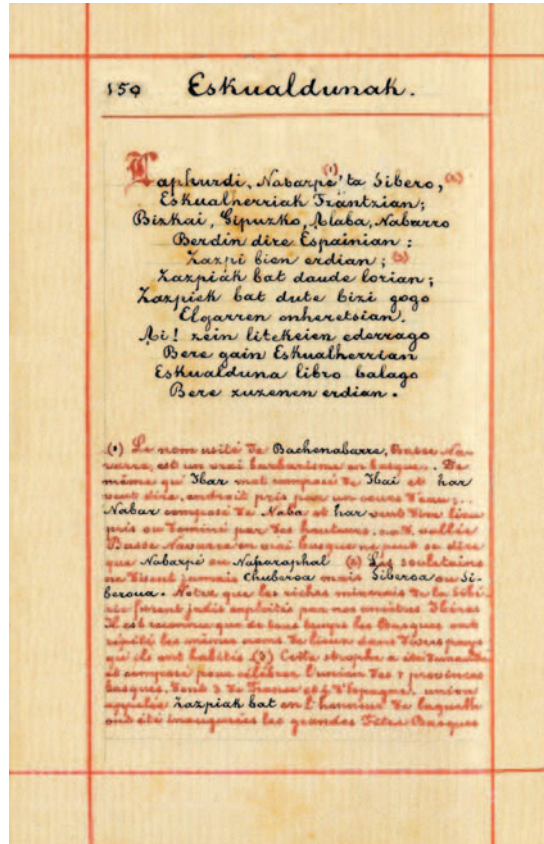 159 Eskualdunak.
Laphurdi, Nabarpe (1) 'ta Sibero, (2)
Eskualherriak Frantzian;
Bizkai, Gipuzko, Alaba, Nabarro
Berdin dire Espainian:
Zazpi bien erdian; (3)
Zazpiak bat daude lorian;
Zazpiek bat dute bizi gogo
Elgarren onheretsian.
Ai! zein litekeien ederrago
Bere gain Eskualherrian
Eskualduna libro balago
Bere zuzenen erdian.
(1) Le nom usité de Bachenabarre, Basse Na-
varre, est un vrai barbarisme en basque. De
même qu'Ibar mot composé de Ibai et har
veut dire, endroit pris par un cours d'eau;
Nabar composé de Naba et har veut dire lieu
pris ou dominé par des hauteurs. vallée
Basse Navarre en vrai basque ne peut se dire
que Nabarpé ou Naparaphal (2) Les souletains
ne disent jamais Chuberoa mais Siberoa ou Si-
beroua. Notre que les riches minerais de la Sibé-
rie furent jadis exploités par nos ancêtres Ibères
Il est reconnu que de tous temps les Basques ont
répété les mêmes noms de lieux dans divers pays
qu'ils ont habités (3) Cette strophe a été demandée
et composée pour célébrer l'union des 7 provinces
basques, dont 3 de France et 4 d'Espagne, union
appelée Zazpiak bat en l'honneur de laquelle
ont été inaugurées les grandes Fêtes Basques